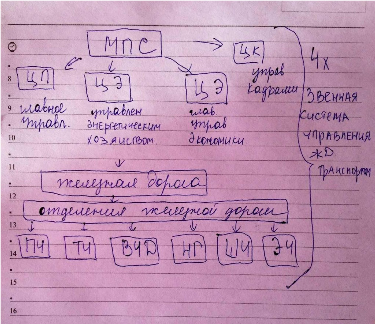 МПС
ЦП
ЦЭ
ЦЭ
ЦК
главное
управл.
управлен
энергетическим
хозяйством
глав
управ
экономики
управ
кадрами
4х
звенная
система
управления
ЖД
транспортом
железная дорога
отделения железной дороги
ПЧ
ТЧ
ВЧД
НГ
ШЧ
ЭЧ
8
9
10
11
12
13
14
15
16